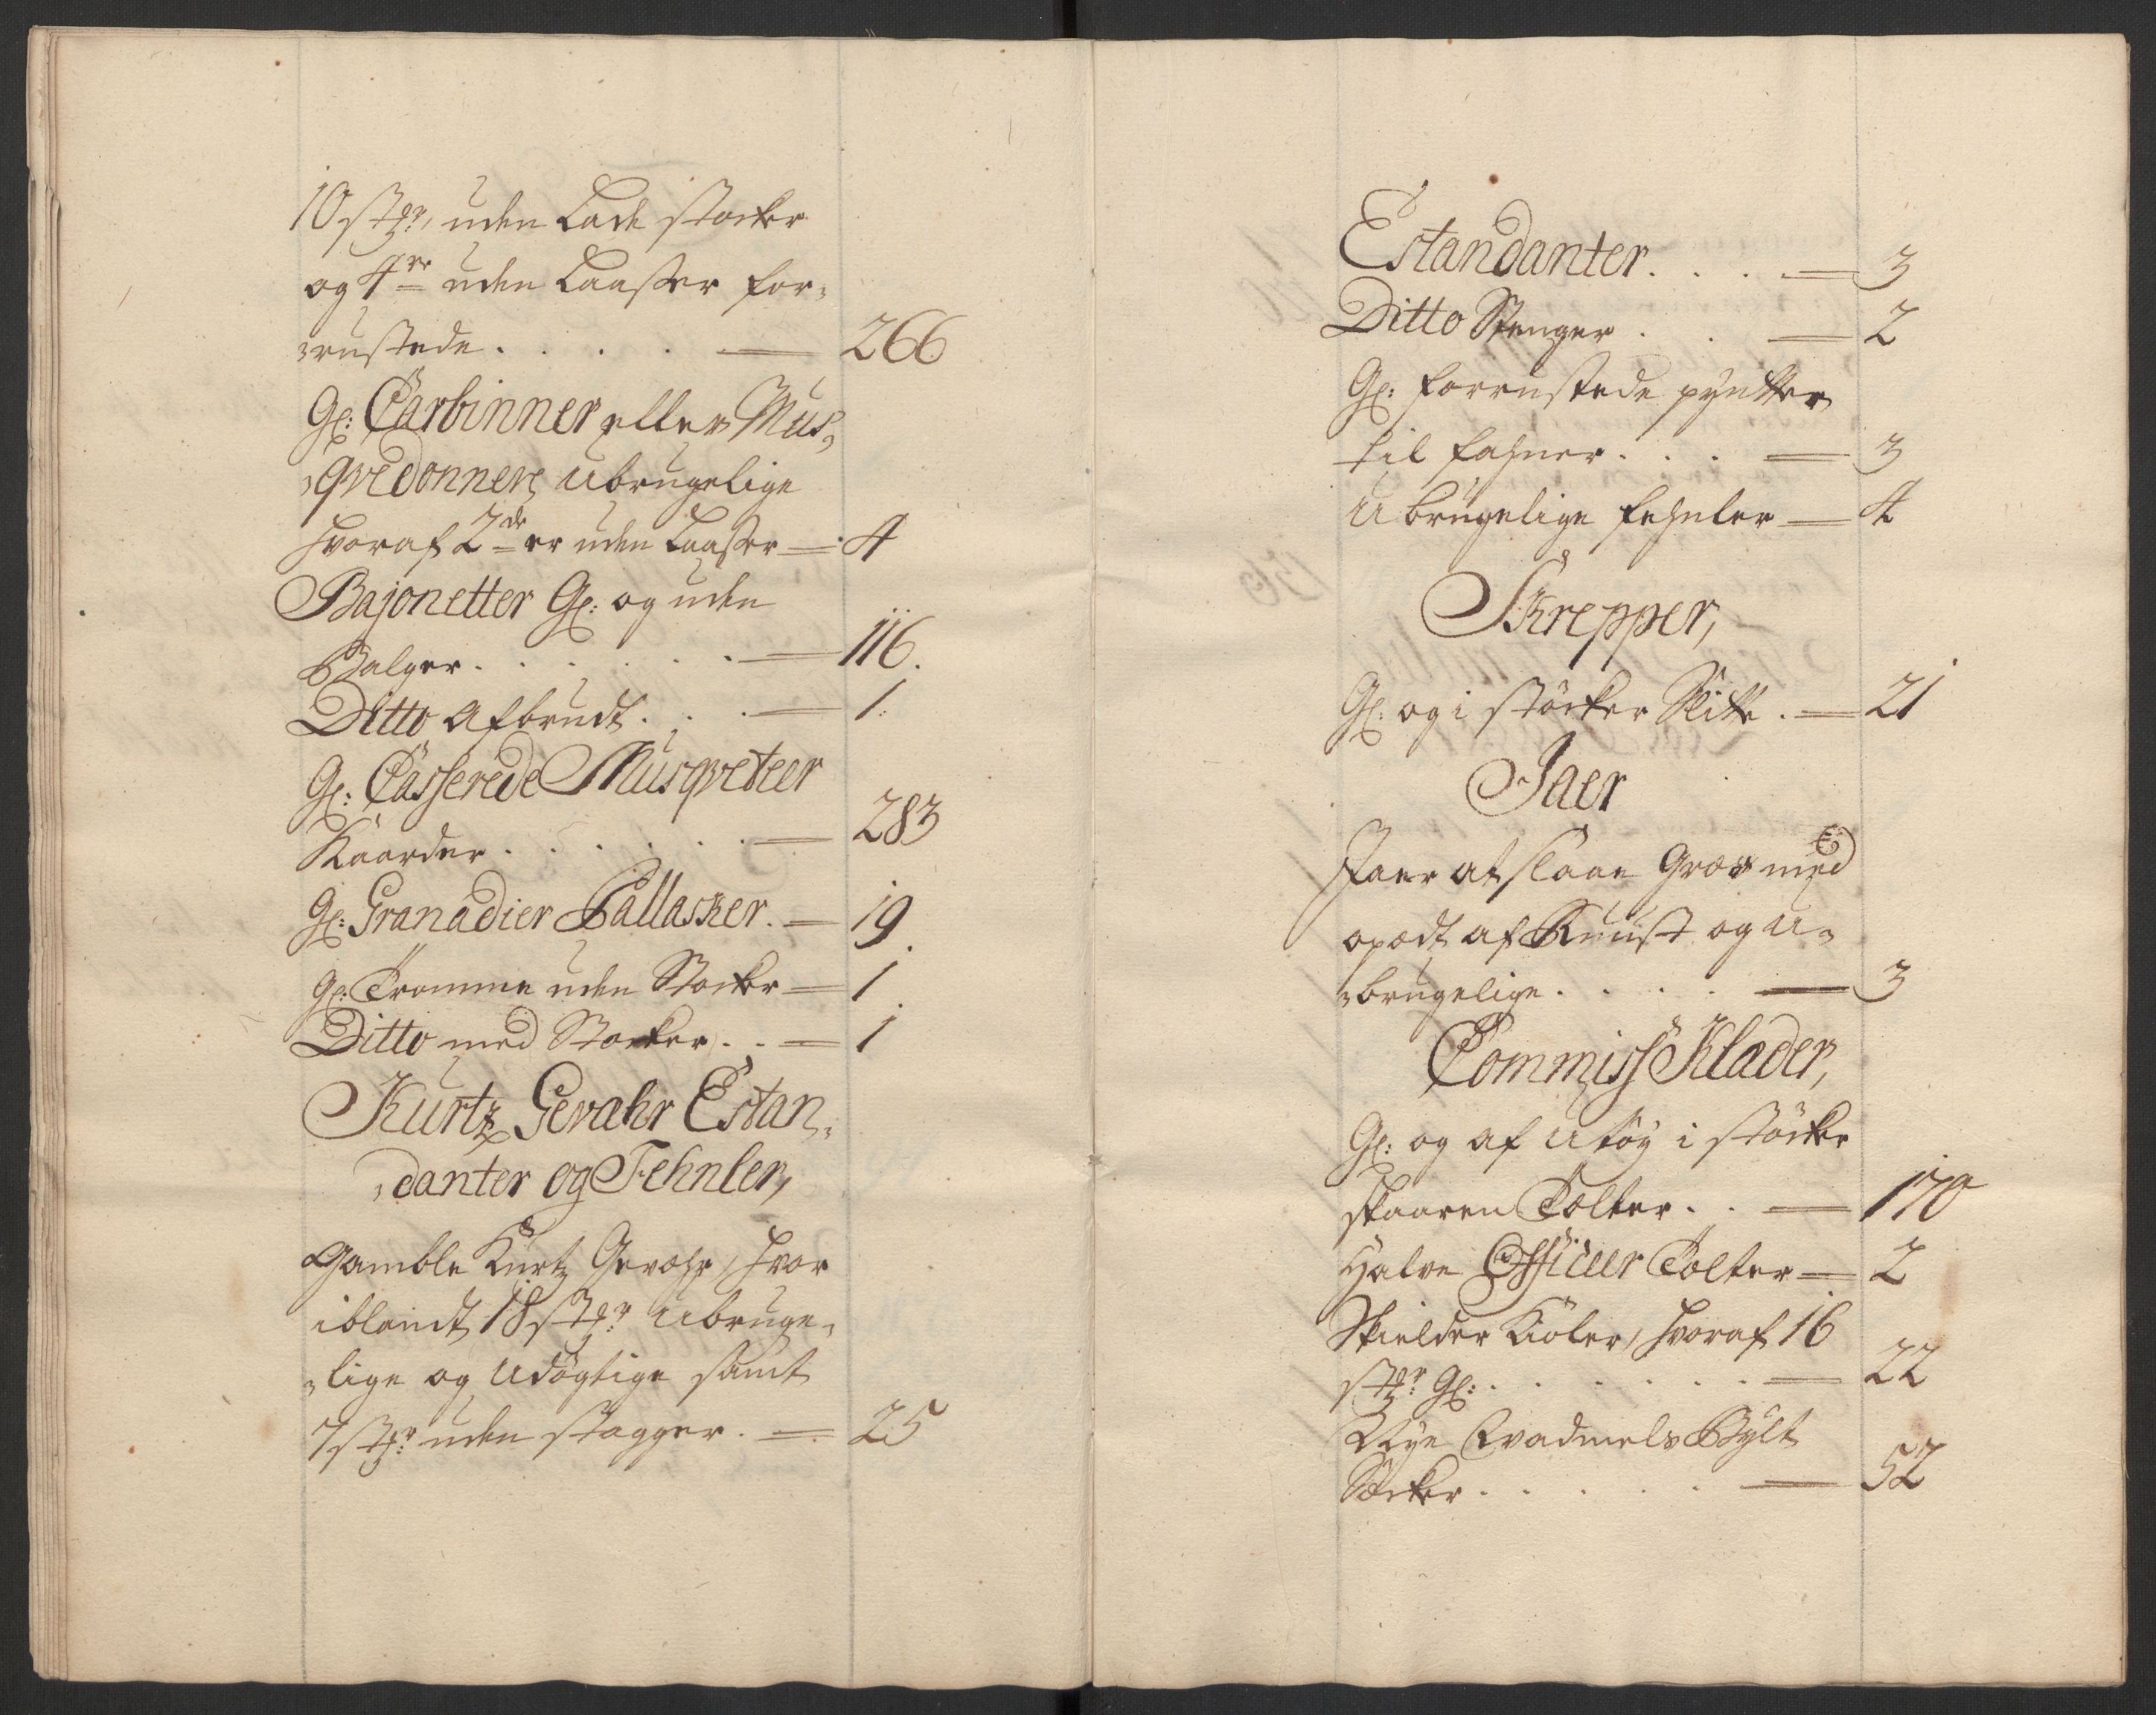 10 støk: uden Lade stocker
og 4re uden Laaster for-
rustede . . . . — 266
Gl: Carbinner eller Mus-
qvedonner ubrugelige
hvoraf 2de er uden Laaser — 4
Bajonetter Gl: og uden
Balger . . . . . . — 116.
Ditto afbrudt . . . — 1.
Gl: Casserede Musqveteer
Kaarder . . . . . . — 283
Gl: Granadier Pallasker. — 19.
Gl: Tromme uden Stocker — 1.
Ditto med Stocker . . — 1
Kurtz Gevæhr Estan-
danter og Fehnler,
Gamble Kurtz Gevæhr, hvor
iblandt 18 støk: ubruge-
lige og udögtige samt
7 støk: uden stagger . — 25
Estandanter . . . . — 3
Ditto Stenger . . — 2
Gl: forrustede pyntter
til fahner . . . — 3
Ubrugelige fehnler — 4
Skrepper,
Gl: og i störker Slitte . — 21
Jaer
Jaer at slaae Græs med
opædt af Ruust og u-
brugelige . . . . — 3
Commiss Klæder,
Gl: og af Utöy i störker
skaaren Kolter . . — 170
Halve Officeer Kolter — 2
Skielder Kioler, hvoraf 16
støk: Gl: . . . . . . — 22
Nye Vadmels Bylt
Sæcker . . . . . — 52